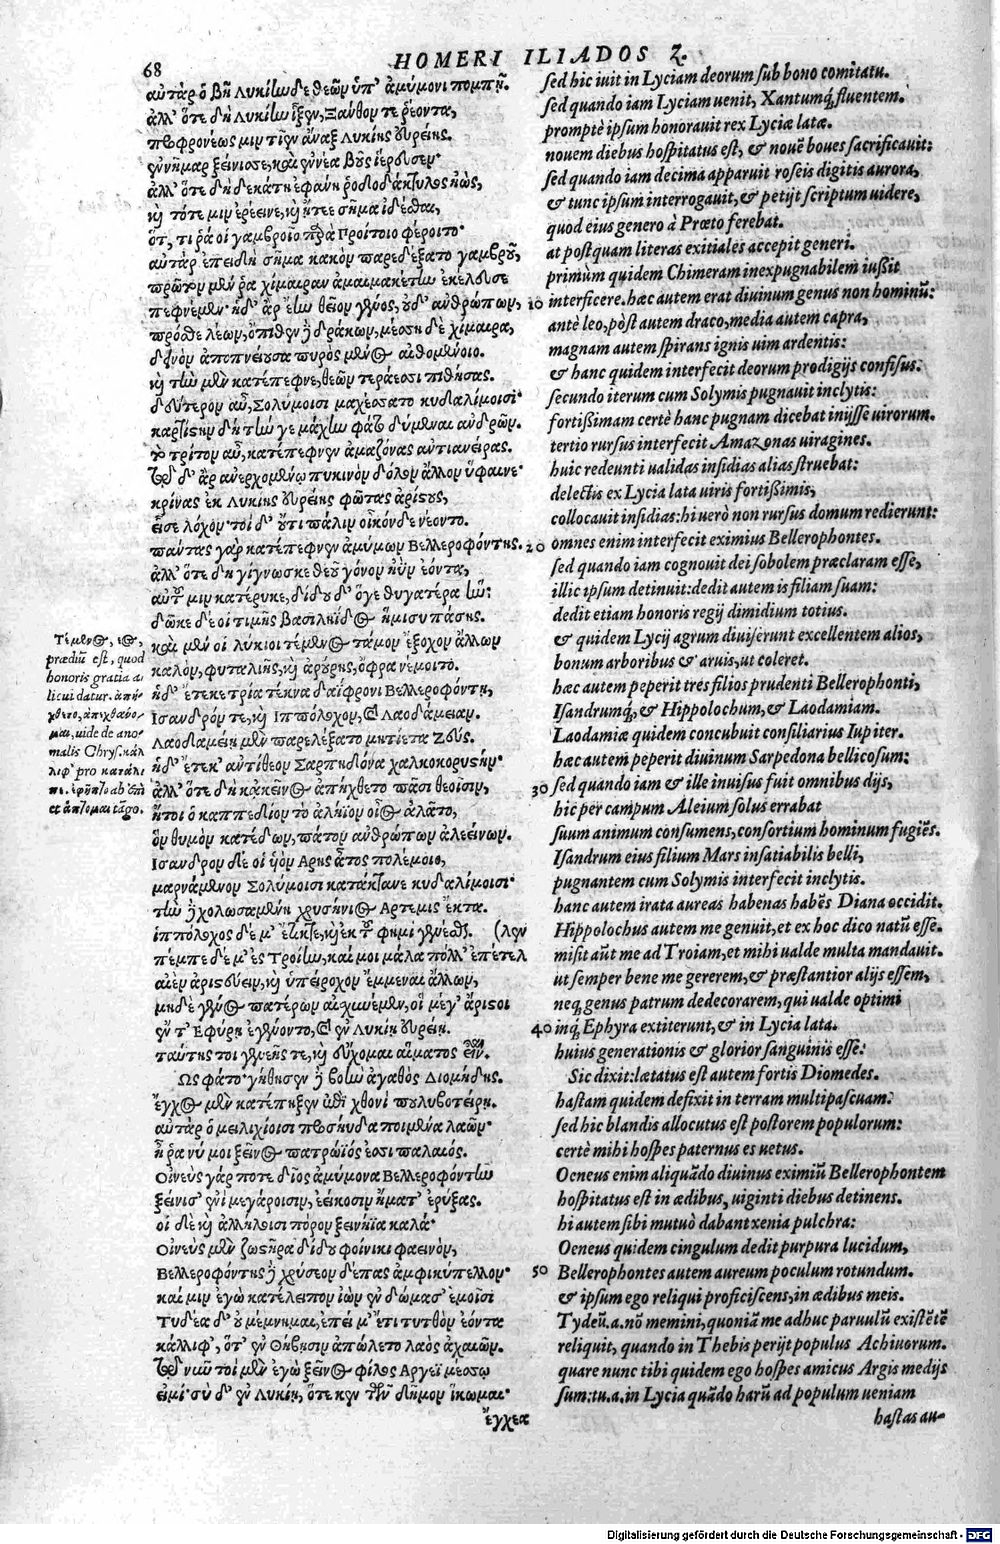 68
HOMERI ILIADOS Z.
αὐτὰρ ὁ βῆ Λυκίωδε θεῶν ὑπ' ἀμύμονι πομπῇ.
ἀλλ' ὅτε δὴ Λυκίω ἷξεν, Ξάνθον τε ῥέοντα,
προφρονέως μιν τῖεν ἄναξ Λυκίης εὐρείης.
ἐννῆμαρ ξείνισε, καὶ ἐννέα βοῦς ἱέρευσεν·
ἀλλ' ὅτε δὴ δεκάτη ἐφάνη ῥοδοδάκτυλος ἠὼς,
καὶ τότε μιν ἐρέεινε, καὶ ᾔτεε σῆμα ἰδέσθαι,
ὅτ, τι ῥά οἱ γαμβροῖο πάρα Προίτοιο φέροιτο·
αὐτὰρ ἐπειδὴ σῆμα κακὸν παρεδέξατο γαμβροῦ,
πρῶτον μέν ῥα χίμαιραν ἀμαιμακέτην ἐκέλευσε
πεφνέμεν· ἡ δ' ἄρ' ἔην θεῖον γένος, οὐδ' ἀνθρώπων,
πρόσθε λέων, ὄπιθεν δὲ δράκων, μέσση δὲ χίμαιρα,
δεινὸν ἀποπνείουσα πυρὸς μένος αἰθομένοιο.
καὶ τὴν μὲν κατέπεφνε, θεῶν τεράεσσι πιθήσας.
δεύτερον αὖ, Σολύμοισι μαχέσσατο κυδαλίμοισι·
καρτίστην δὴ τήν γε μάχην φάτο δύμεναι ἀνδρῶν.
τὸ τρίτον αὖ, κατέπεφνεν ἀμαζόνας ἀντιανείρας.
τῷ δ' ἄρ' ἀνερχομένῳ πυκινὸν δόλον ἄλλον ὕφαινε·
κρίνας ἐκ Λυκίης εὐρείης φῶτας ἀρίστους,
εἷσε λόχον· τοὶ δ' οὔτι πάλιν οἶκόνδε νέοντο.
πάντας γὰρ κατέπεφνεν ἀμύμων Βελλεροφόντης.
ἀλλ' ὅτε δὴ γίγνωσκε θεοῦ γόνον ἠὺν ἐόντα,
αὐτοῦ μιν κατέρυκε, δίδου δ' ὅγε θυγατέρα ἥν·
δῶκε δέ οἱ τιμῆς βασιληίδος ἥμισυ πάσης.
καὶ μέν οἱ λύκιοι τέμενος τάμον ἔξοχον ἄλλων
καλὸν, φυταλιῆς, καὶ ἀρούρης, ὄφρα νέμοιτο.
ἡ δ' ἔτεκε τρία τέκνα δαΐφρονι Βελλεροφόντῃ,
Ισανδρόν τε, καὶ Ιππόλοχον, καὶ Λαοδάμειαν.
Λαοδαμείῃ μὲν παρελέξατο μητίετα Ζεύς.
ἡ δ' ἔτεκ' ἀντίθεον Σαρπηδόνα χαλκοκορυστήν·
ἀλλ' ὅτε δὴ κἀκεῖνος ἀπήχθετο πᾶσι θεοῖσιν,
ἤτοι ὁ καππεδίον τὸ ἀλήϊον οἶος ἀλᾶτο,
ὃν θυμὸν κατέδων, πάτον ἀνθρώπων ἀλεείνων.
Ισανδρον δέ οἱ υἱὸν Αρης ἆτος πολέμοιο,
μαρνάμενον Σολύμοισι κατάκτανε κυδαλίμοισι·
τὴν δὲ χολωσαμένη χρυσήνιος Αρτεμις ἔκτα.
ἱππόλοχος δέ μ' ἔτικτε, καὶ ἐκ τοῦ φημὶ γενέσθαι. (λεν
πέμπε δέ μ' ἐς Τροίην, καί μοι μάλα πόλλ' ἐπέτελ
αἰὲν ἀριστεύειν, καὶ ὑπείροχον ἔμμεναι ἄλλων,
μηδὲ γένος πατέρων αἰσχυνέμεν, οἳ μέγ' ἄριστοι
ἔν τ' Εφύρῃ ἐγένοντο, καὶ ἐν Λυκίῃ εὐρείῃ.
ταύτης τοι γενεῆς τε, καὶ εὔχομαι αἵματος εἶναι.
Ως φάτο· γήθησεν δὲ βοὴν ἀγαθὸς Διομήδης.
ἔγχος μὲν κατέπηξεν ἐπὶ χθονὶ πουλυβοτείρῃ.
αὐτὰρ ὁ μειλιχίοισι προσηύδα ποιμένα λαῶν·
ἦ ῥα νύ μοι ξεῖνος πατρώϊός ἐσσι παλαιός.
Οἰνεὺς γάρ ποτε δῖος ἀμύμονα Βελλεροφόντην
ξείνισ' ἐνὶ μεγάροισιν, ἐείκοσιν ἤματ' ἐρύξας.
οἱ δὲ καὶ ἀλλήλοισι πόρον ξεινήϊα καλά·
Οἰνεὺς μὲν ζωστῆρα δίδου φοίνικι φαεινὸν,
Βελλεροφόντης δὲ χρύσεον δέπας ἀμφικύπελλον·
καί μιν ἐγὼ κατέλειπον ἰὼν ἐν δώμασ' ἐμοῖσι
Τυδέα δ' οὐ μέμνημαι, ἐπεί μ' ἔτι τυτθὸν ἐόντα
κάλλιφ', ὅτ' ἐν Θήβησιν ἀπώλετο λαὸς ἀχαιῶν.
τῷ νῦν τοὶ μὲν ἐγὼ ξεῖνος φίλος Αργεϊ μέσσῳ
εἰμί· σὺ δ' ἐν Λυκίῃ, ὅτε κεν τῶν δῆμον ἵκωμαι·
ἔγχεα
Τέμενος, εος,
prædiũ est, quod
honoris gratia a
licui datur. ἀπή-
χθετο, ἀπεχθάνο-
μαι, uide de ano-
malis Chrys. κάλ
λιφ' pro κατάλι
πε. ἐρῦπτο ab ἐπὶ
et ἅπτομαι τάσσο.
sed hic iuit in Lyciam deorum sub bono comitatu.
sed quando iam Lyciam uenit, Xantumq́; fluentem.
promptè ipsum honorauit rex Lyciæ latæ.
nouem diebus hospitatus est, & nouẽ boues sacrificauit:
sed quando iam decima apparuit roseis digitis aurora,
& tunc ipsum interrogauit, & petijt scriptum uidere,
quod eius genero à Prœto ferebat.
at postquam literas exitiales accepit generi.
primùm quidem Chimeram inexpugnabilem iußit
10 interficere. hæc autem erat diuinum genus non hominũ:
antè leo, pòst autem draco, media autem capra,
magnam autem spirans ignis uim ardentis:
& hanc quidem interfecit deorum prodigijs confisus.
secundo iterum cum Solymis pugnauit inclytis:
fortißimam certè hanc pugnam dicebat inijsse uirorum.
tertio rursus interfecit Amazonas uiragines.
huic redeunti ualidas insidias alias struebat:
delectis ex Lycia lata uiris fortißimis,
collocauit insidias: hi uerò non rursus domum redierunt:
20 omnes enim interfecit eximius Bellerophontes.
sed quando iam cognouit dei sobolem præclaram esse,
illic ipsum detinuit: dedit autem is filiam suam:
dedit etiam honoris regij dimidium totius.
& quidem Lycij agrum diuiserunt excellentem alios,
bonum arboribus & aruis, ut coleret.
hæc autem peperit tres filios prudenti Bellerophonti,
Isandrumq́;, & Hippolochum, & Laodamiam.
Laodamiæ quidem concubuit consiliarius Iupiter.
hæc autem peperit diuinum Sarpedona bellicosum:
30 sed quando iam & ille inuisus fuit omnibus dijs,
hic per campum Aleium solus errabat
suum animum consumens, consortium hominum fugiẽs.
Isandrum eius filium Mars insatiabilis belli,
pugnantem cum Solymis interfecit inclytis.
hanc autem irata aureas habenas habẽs Diana occidit.
Hippolochus autem me genuit, et ex hoc dico natũ esse.
misit aũt me ad Troiam, et mihi ualde multa mandauit.
ut semper bene me gererem, & præstantior alijs essem,
neq; genus patrum dedecorarem, qui ualde optimi
40 inq́; Ephyra extiterunt, & in Lycia lata.
huius generationis & glorior sanguinis esse:
Sic dixit: lætatus est autem fortis Diomedes.
hastam quidem defixit in terram multipascuam:
sed hic blandis allocutus est pastorem populorum:
certè mihi hospes paternus es uetus.
Oeneus enim aliquãdo diuinus eximiũ Bellerophontem
hospitatus est in ædibus, uiginti diebus detinens.
hi autem sibi mutuò dabant xenia pulchra:
Oeneus quidem cingulum dedit purpura lucidum,
50 Bellerophontes autem aureum poculum rotundum.
& ipsum ego reliqui proficiscens, in ædibus meis.
Tydeũ. a. nõ memini, quoniã me adhuc paruulũ existẽtẽ
reliquit, quando in Thebis perijt populus Achiuorum.
quare nunc tibi quidem ego hospes amicus Argis medijs
sum: tu. a. in Lycia quãdo harũ ad populum ueniam
hastas au-
Digitalisierung gefördert durch die Deutsche Forschungsgemeinschaft - DFG